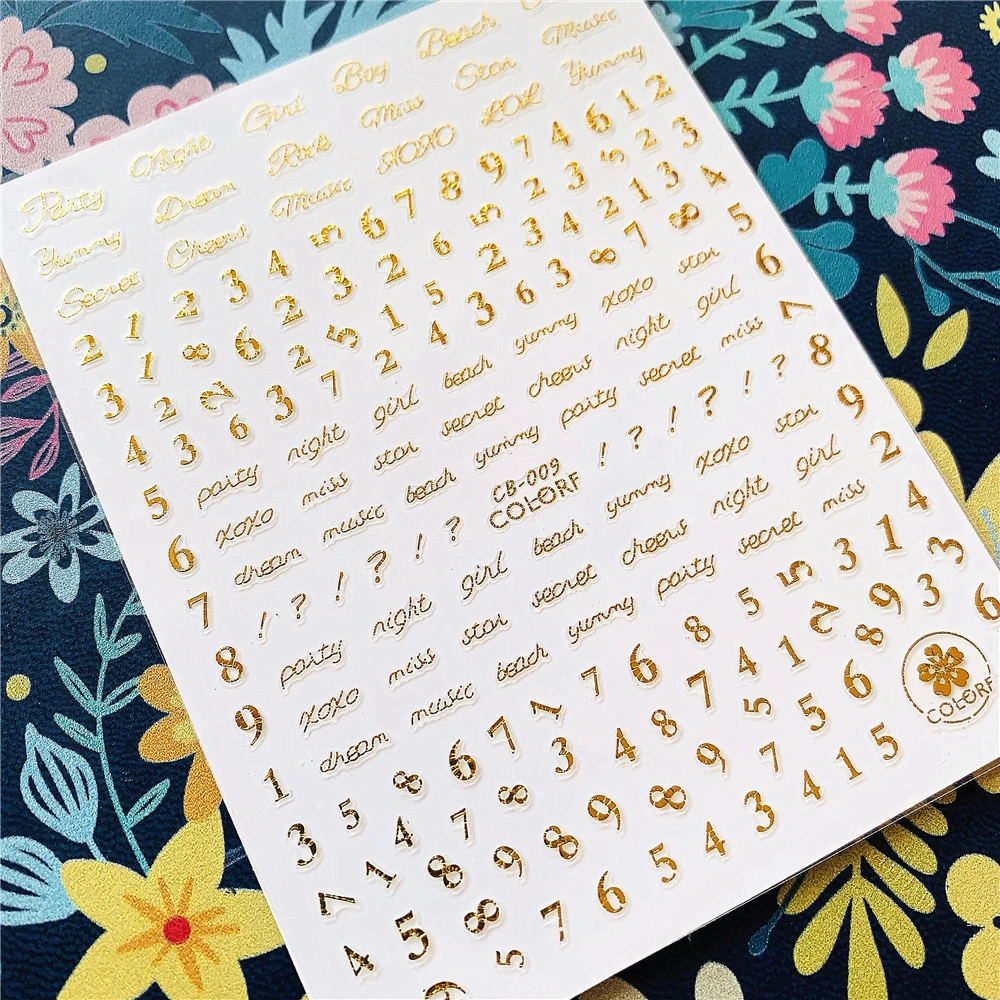 Party Night Girl Boy Beach
Yummy Dream Rock Miss Star Music
Secret Cheers Music XOXO LOL Yummy
2 1 2 3 4 5 6 7 8 9 7 4 6 1 2
3 1 8 6 2 3 2 6 5 2 3 5 2 3
4 2 7 2 5 1 5 2 3 4 2 1 3 4
3 6 3 7 2 4 3 6 3 8 7 8 5
5 party night girl beach yummy xoxo star 6
6 xoxo miss star secret cheers night girl 7
7 dream music beach yummy party secret miss 8
8 ! ? ! ? ! ? CB-009 ! ? ! ? ! ? 9
COLORF
9 party night girl beach yummy xoxo star 2
1 xoxo miss star secret cheers night girl 4
3 dream music beach yummy party secret miss
5 8 6 7 1 7 6 8 5 5 3 1
7 4 7 8 3 4 8 7 4 1 2 9 3
1 8 9 8 9 8 9 7 5 5 6 8 3
4 5 8 5 7 6 5 4 3 4 1 5 6
COLORF